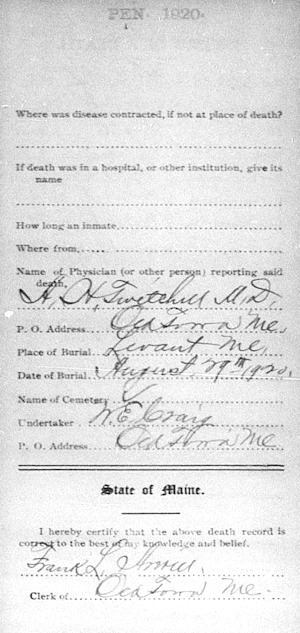 PEN. 1920.
Where was disease contracted, if not at place of death?
If death was in a hospital, or other institution, give its
name
How long an inmate
Where from,
Name of Physician (or other person) reporting said
death,
H. H. Twitchell M.D.
P. O. Address Old Town Me.
Place of Burial Levant Me,
Date of Burial August 29th 1920
Name of Cemetery
Undertaker W. E. Craig
P. O. Address Old Town Me
State of Maine.
I hereby certify that the above death record is
correct to the best of my knowledge and belief.
Frank L.
Clerk of Old Town Me.